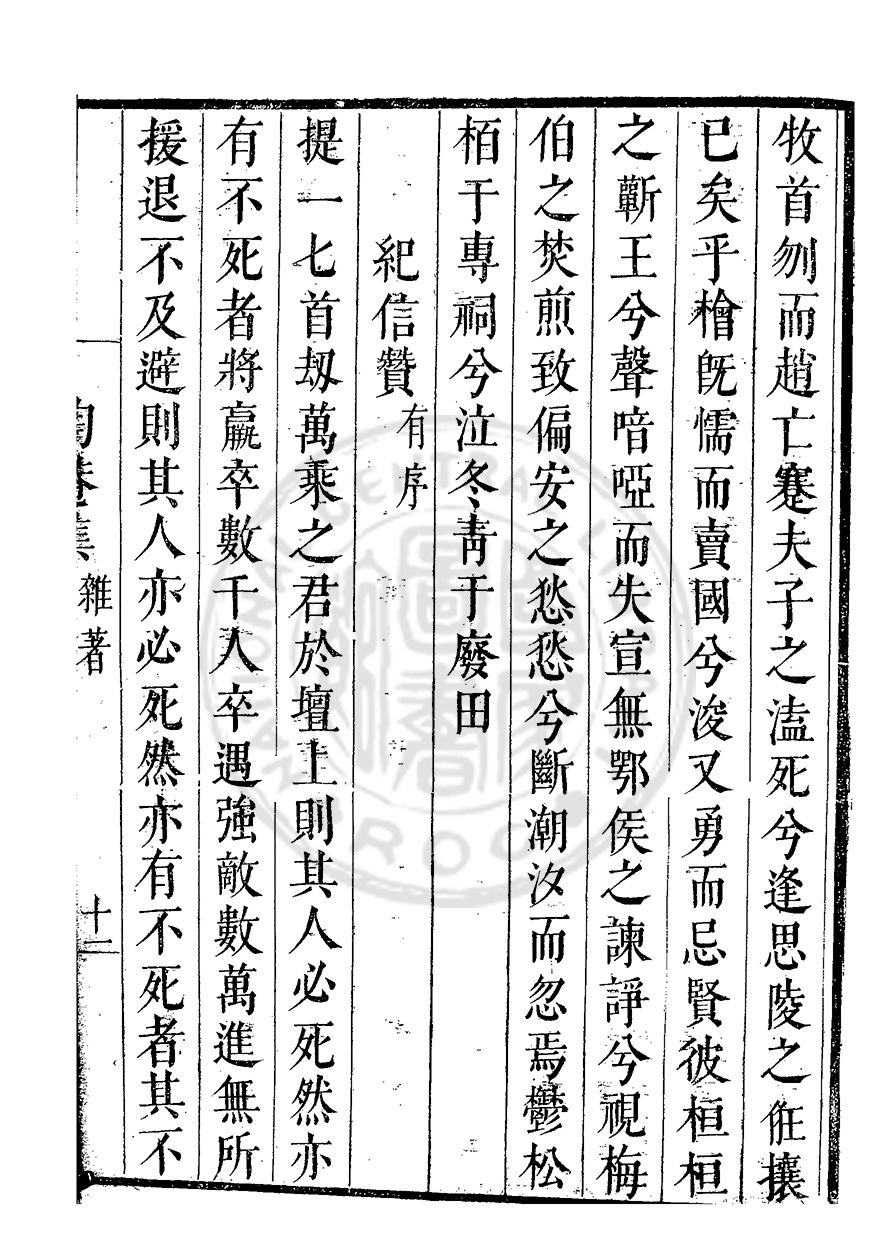 牧首刎而趙亡蹇夫子之溘死兮逢思陵之俇攘
已矣乎檜旣懦而賣國兮浚又勇而忌賢彼桓桓
之蘄王兮聲喑啞而失宣無鄂侯之諫諍兮視梅
伯之焚煎致偏安之愁愁兮斷潮汐而忽焉鬱松
栢于專祠兮泣冬靑于廢田
紀信贊有序
提一匕首刼萬乘之君於壇上則其人必死然亦
有不死者將羸卒數千人卒遇強敵數萬進無所
援退不及避則其人亦必死然亦有不死者其不
陶菴集 雜著 十一